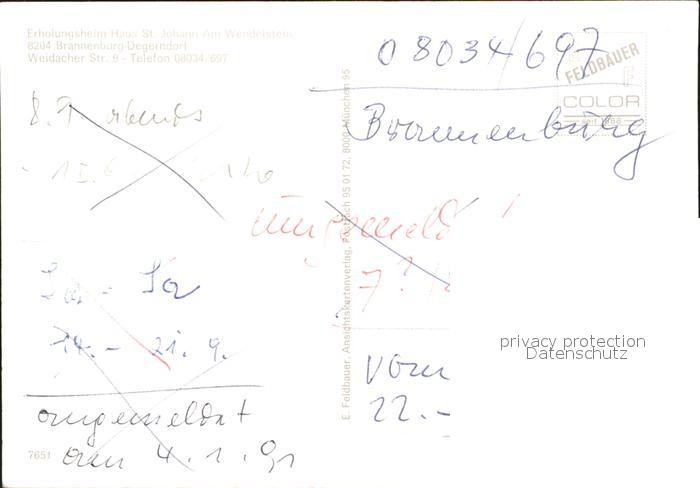 Erholungsheim Haus St. Johann Am Wendelstein
8204 Brannenburg-Degerndorf
Weidacher Str. 9 - Telefon 08034/697
08034/697
FELDBAUER
COLOR
seit 1888
Brannenburg
E. Feldbauer, Ansichtskartenverlag, Postfach 95 01 72, 8000 München 95
Sa - Sa
14. - 21. 9.
angemeldet
am 4. 1. 91
7651
vom
22. -
privacy protection
Datenschutz